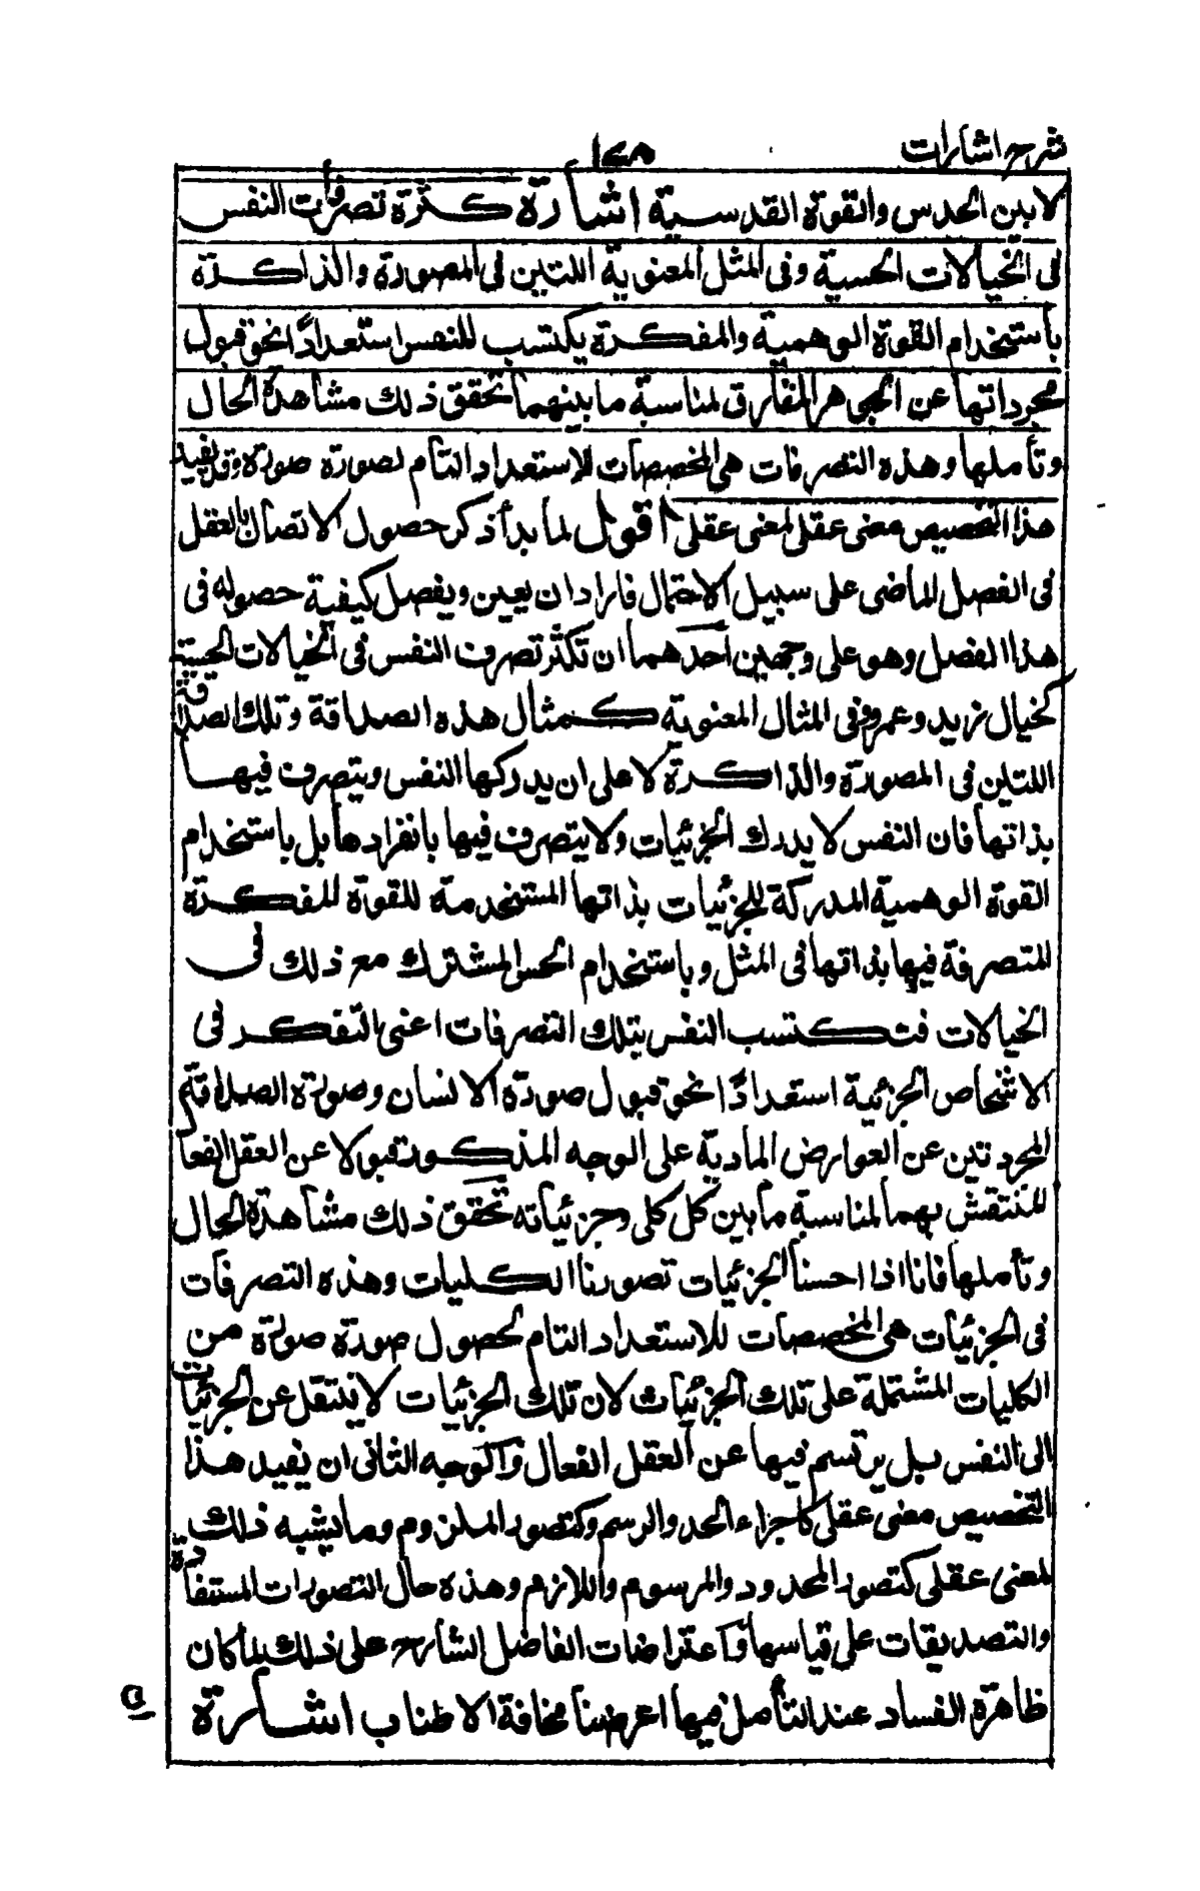 شرح اشارات
لا بين الحدس والقوة القدسية اشارة كثرة تصرفات النفس
فى الخيالات الحسية وفى المثل المعنوية اللتين فى المصورة والذاكرة
باستخدام القوة الوهمية والمفكرة يكتسب للنفس استعدادًا نحو قبول
مجرداتها عن الجوهر المفارق لمناسبة ما بينهما تحقق ذلك مشاهدة الحال
وتأملها وهذه التصرفات هى المخصصات للاستعداد التام لصورة صورة وقد يفيد
هذا التخصيص معنى عقلى لمعنى عقلى اقول لما بدأ ذكر حصول الاتصال بالعقل
فى الفصل الماضى على سبيل الاحتمال فاراد ان يعين ويفصل كيفية حصوله فى
هذا الفصل وهو على وجهين احدهما ان تكثر تصرف النفس فى الخيالات الحسية
كخيال زيد وعمرو وفى المثال المعنوية كمثال هذه الصداقة وتلك الصداقة
اللتين فى المصورة والذاكرة لا على ان يدركها النفس ويتصرف فيها
بذاتها فان النفس لا يدرك الجزئيات ولا يتصرف فيها بانفرادها بل باستخدام
القوة الوهمية المدركة للجزئيات بذاتها المستخدمة للقوة المفكرة
المتصرفة فيها بذاتها فى المثل وباستخدام الحس المشترك مع ذلك فى
الخيالات فتكتسب النفس بتلك التصرفات اعنى التفكر فى
الاشخاص الجزئية استعدادًا نحو قبول صورة الانسان وصورة الصداقة
المجردتين عن العوارض المادية على الوجه المذكور قبولا عن العقل الفعال
المنتقش بهما لمناسبة ما بين كل كلى وجزئياته تحقق ذلك مشاهدة الحال
وتأملها فانا اذا احسنا الجزئيات تصورنا الكليات وهذه التصرفات
فى الجزئيات هى المخصصات للاستعداد التام لحصول صورة صورة من
الكليات المشتملة على تلك الجزئيات لان تلك الجزئيات لا ينتقل عن الجزئيات
الى النفس بل يرتسم فيها عن العقل الفعال والوجه الثانى ان يفيد هذا
التخصيص معنى عقلى كاجزاء الحد والرسم وكتصور الملزوم وما يشبه ذلك
لمعنى عقلى كتصور المحدود والمرسوم واللازم وهذه حال التصورات المستفادة
والتصديقات على قياسها واعتراضات الفاضل الشارح على ذلك لما كان
ظاهرة الفساد عند التأمل فيها اعرضنا مخافة الاطناب اشارة